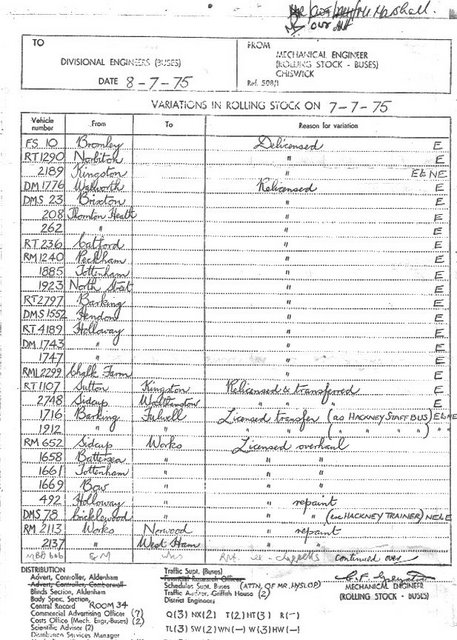 Mr Marshall.
our
TO
DIVISIONAL ENGINEERS (BUSES)
DATE 8-7-75
FROM
MECHANICAL ENGINEER
(ROLLING STOCK - BUSES)
CHISWICK
Ref.
VARIATIONS IN ROLLING STOCK ON 7-7-75
Vehicle number From To Reason for variation
FS 10 Bromley Delicensed E
RT1290 Norbiton " E
2189 Kingston " E & NE
DM 1776 Walworth Relicensed E
DMS 23 Brixton " E
208 Thornton Heath " E
262 " " E
RT 236 Catford " E
RM 1240 Peckham " E
1885 Tottenham " E
1923 North Street " E
RT2797 Barking " E
DMS 1552 Hendon " E
RT 4189 Holloway " E
DM 1743 " " E
1747 " " E
RML 2299 Chalk Farm " E
RT 1107 Sutton Kingston Relicensed & transferred E
2748 Sidcup Walthamstow " " E
1716 Barking Fulwell Licensed transfer (as HACKNEY STAFF BUS) E & NE
1912 " " " " ( " " " " ) " "
RM 652 Sidcup Works Licensed overhaul
1658 Battersea " " "
1661 Tottenham " " "
1669 Bow " " "
492 Holloway " " repaint
DMS 78 Cricklewood " " " (ex HACKNEY TRAINER) NE LE
RM 2113 Works Norwood " repaint
2137 " West Ham " "
continued over
DISTRIBUTION
Advert. Controller, Aldenham
Advert. Controller, Camberwell
Blinds Section, Aldenham
Body Spec. Section,
Central Record ROOM 34
Commercial Advertising Officer (7)
Costs Office (Mech. Engr. Buses) (2)
Scientific Adviser (2)
Distribution Services Manager
Traffic Supt. (Buses)
Financial Research Officer
Schedules Supt. Buses (ATTN. OF MR. HYSLOP)
Traffic Author, Griffith House (2)
District Engineers
Q(3) NX(2) T(2) HT(3) R(-)
TL(3) SW(2) WN(-) W(3) HW(-)
MECHANICAL ENGINEER
(ROLLING STOCK - BUSES)